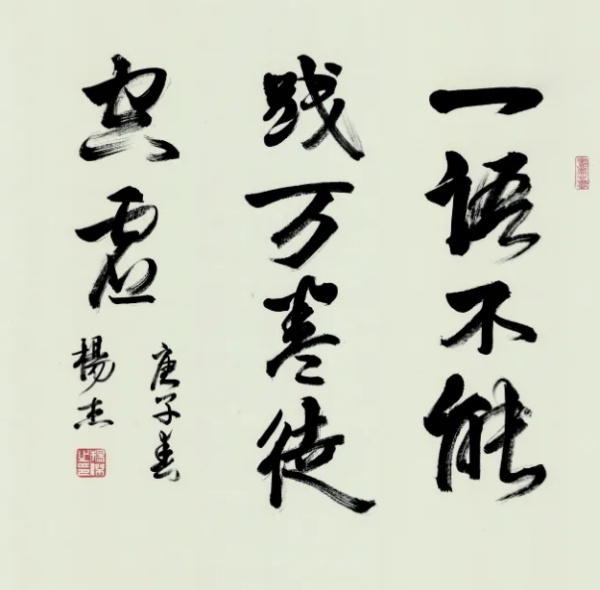 一语不能
践万卷徒
空虚
庚子春
楊杰